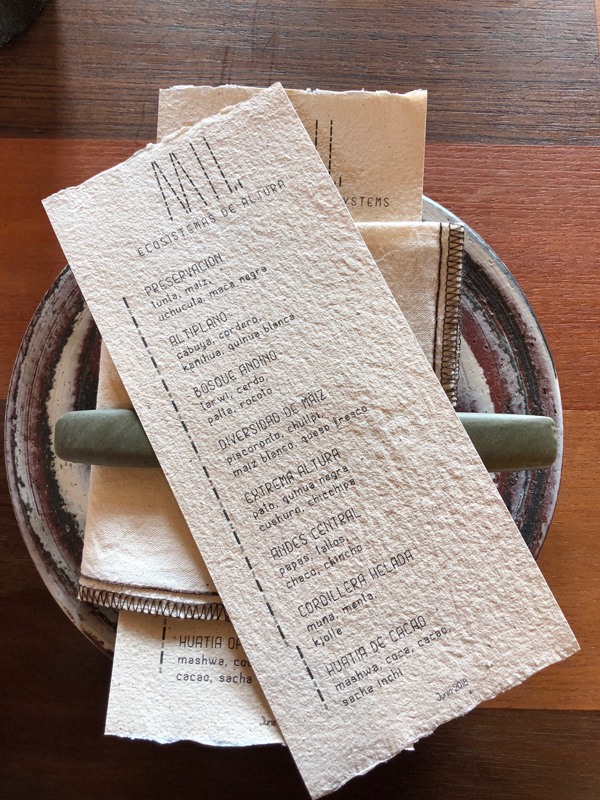 MIL
ECOSISTEMAS DE ALTURA
PRESERVACION
tunta, maiz,
uchucuta, maca negra
ALTIPLANO
cabuya, cordero,
kañihua, quinua blanca
BOSQUE ANDINO
tarwi, cerdo,
palta, rocoto
DIVERSIDAD DE MAIZ
piscoronto, chullpi,
maiz blanco, queso fresco
EXTREMA ALTURA
pato, quinua negra
cushuro, chicchipa
ANDES CENTRAL
papas, tallos,
chaco, chincho
CORDILLERA HELADA
muña, menta,
kjolle
HUATIA DE CACAO
mashwa, coca, cacao,
sacha inchi
Junio 2018
YSTEMS
HUATIA OF
mashwa, co
cacao, sacha